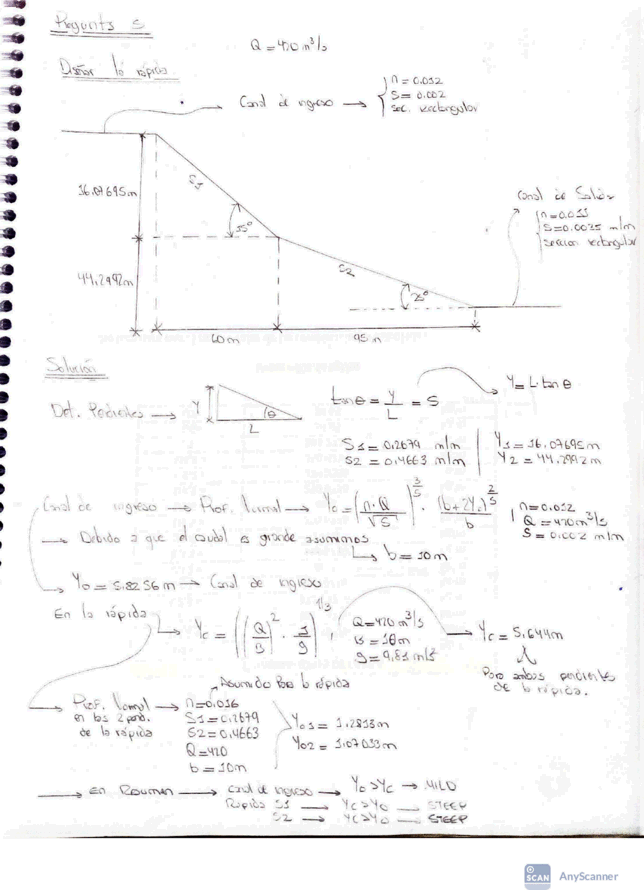 Pregunta 5
Q = 420 m³/s
Diseñar la rápida
Canal de ingreso → { n = 0.012
S = 0.002
sec. rectangular
Canal de Salida
n = 0.011
S = 0.0025 m/m
seccion rectangular
16.07695m
S1
15°
S2
25°
44.2992m
60m
95m
Solución
Det. Pendientes → Y θ L
tanθ = Y/L = S
Y = L·tanθ
S1 = 0.2679 m/m
S2 = 0.4663 m/m
Y1 = 16.07695m
Y2 = 44.2992m
Canal de ingreso → Prof. Normal → Yo = (n·Q/√S)^(3/5) · (b+2Yo)^(2/5)/b
n = 0.012
Q = 420 m³/s
S = 0.002 m/m
→ Debido a que el caudal es grande asumimos
↳ b = 10m
Yo = 5.8256m → Canal de ingreso
En la rápida
Yc = ((Q/B)² · 1/g)^(1/3)
Q = 420 m³/s
B = 10m
g = 9.81 m/s²
→ Yc = 5.644m
Para ambas pendientes
de la rápida.
Asumido para la rápida
→ Prof. Normal → n = 0.016
en las 2 pend.
de la rápida
S1 = 0.2679
S2 = 0.4663
Q = 420
b = 10m
Yo1 = 1.2813m
Yo2 = 1.07033m
→ En Resumen → Canal de ingreso → Yo > Yc → MILD
Rapida S1 → Yc > Yo → STEEP
S2 → Yc > Yo → STEEP
SCAN AnyScanner